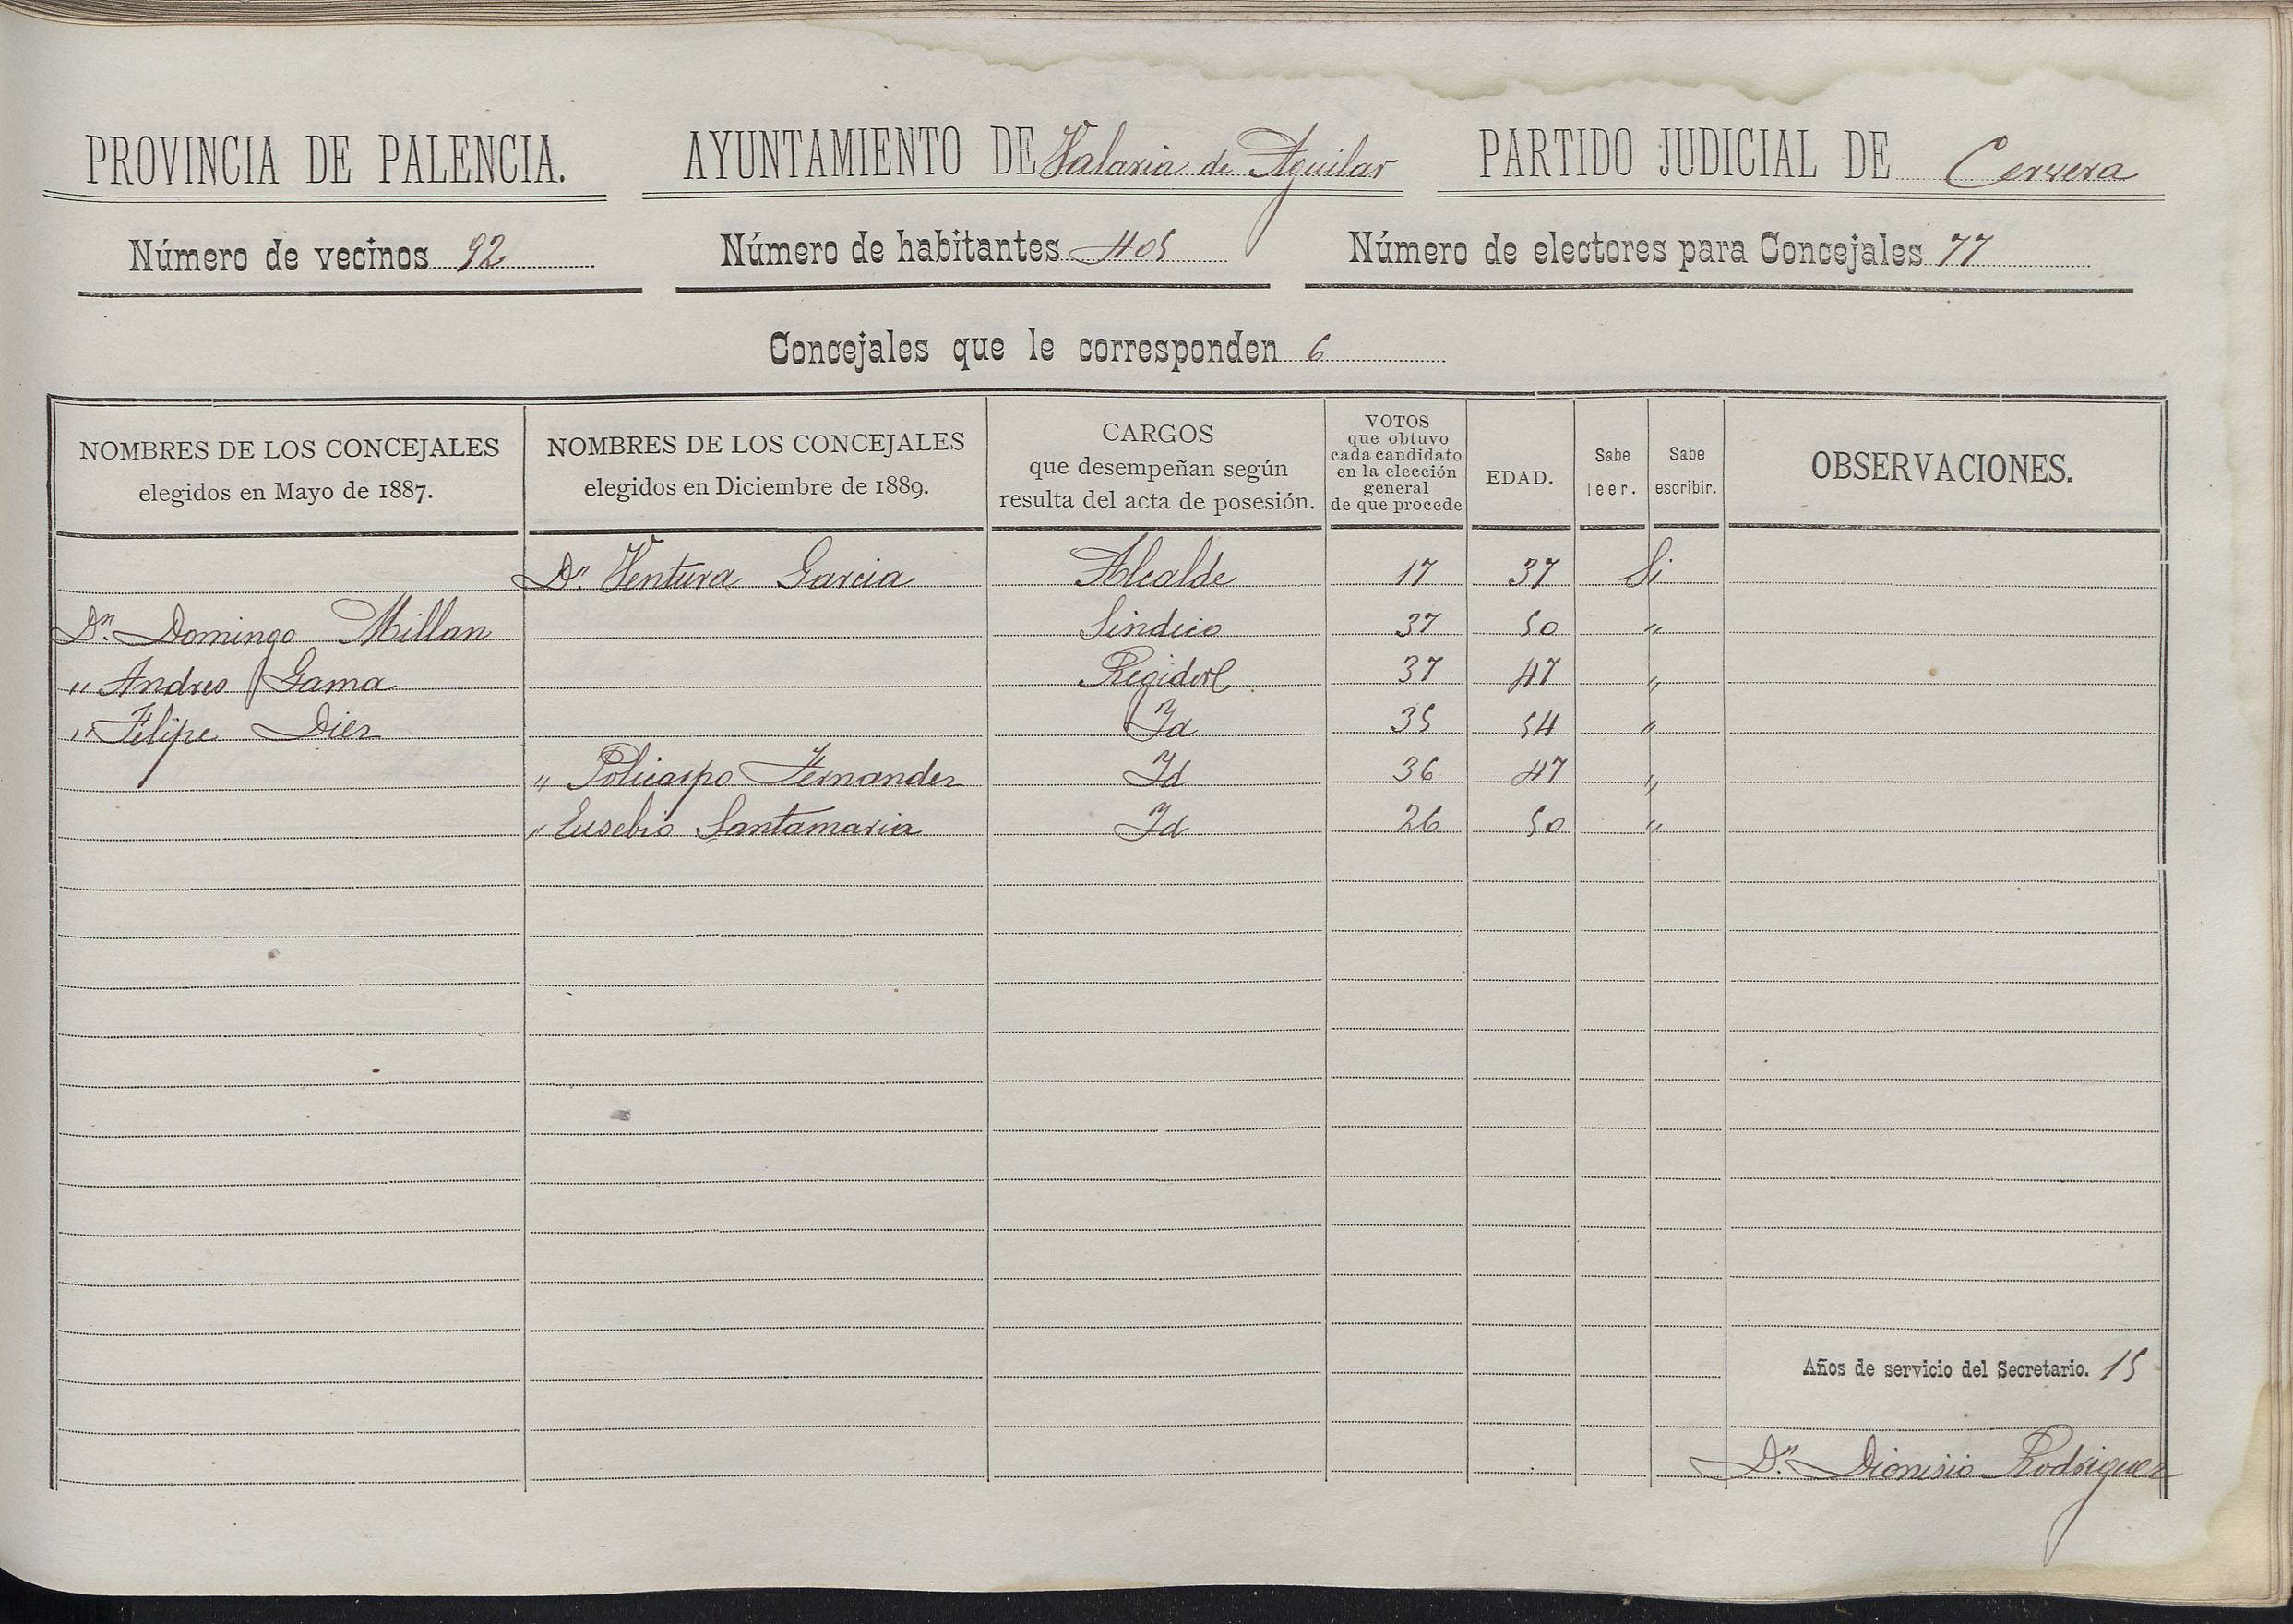 PROVINCIA DE PALENCIA. AYUNTAMIENTO DE Valaria de Aguilar PARTIDO JUDICIAL DE Cervera
Número de vecinos 92 Número de habitantes 405 Número de electores para Concejales 77
Concejales que le corresponden 6
NOMBRES DE LOS CONCEJALES elegidos en Mayo de 1887. NOMBRES DE LOS CONCEJALES elegidos en Diciembre de 1889. CARGOS que desempeñan según resulta del acta de posesión. VOTOS que obtuvo cada candidato en la elección general de que procede EDAD. Sabe leer. Sabe escribir. OBSERVACIONES.
Dn. Ventura Garcia Alcalde 17 37 Si
Dn. Domingo Millan Sindico 37 50 "
" Andres Gama Regidor 37 47 "
" Felipe Diez Id 35 54 "
" Policarpo Fernandez Id 36 47 "
" Eusebio Santamaria Id 26 50 "
Años de servicio del Secretario. 15
Dn. Dionisio Rodriguez